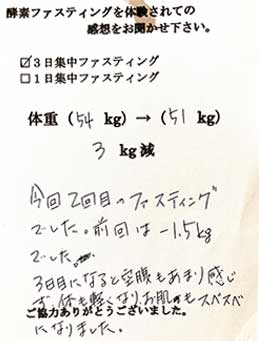 酵素ファスティングを体験されての
感想をお聞かせ下さい。
☑3日集中ファスティング
□1日集中ファスティング
体重（54 kg）→（51 kg）
3 kg減
今回2回目のファスティング
でした。前回は−1.5kg
でした。
3日目になると空腹もあまり感じ
ず、体も軽くなり、お肌もスベスベ
ご協力ありがとうございました。
になりました。